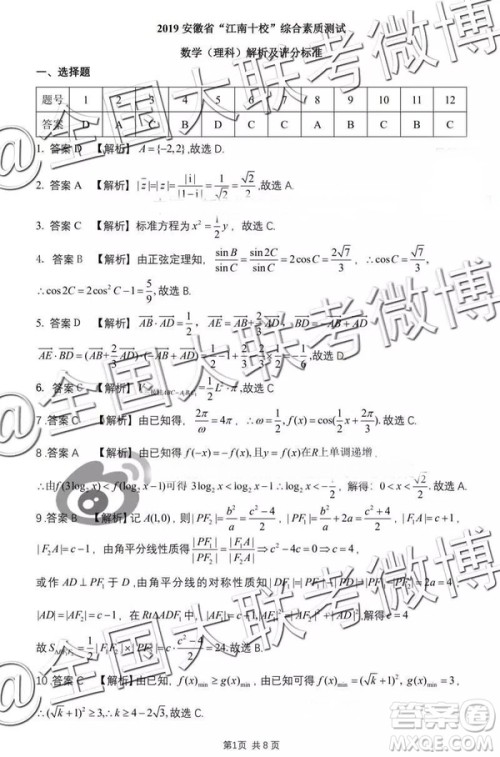 2019 安徽省“江南十校”综合素质测试
数学（理科）解析及评分标准
一、选择题
题号 1 2 3 4 5 6 7 8 9 10 11 12
答案 D A C B D C C A B C D D
1. 答案 D 【解析】 A={-2,2},故选 D.
2. 答案 A 【解析】 |z̄|=|z|=|i|/|1-i|=1/√2=√2/2,故选 A.
3. 答案 C 【解析】 标准方程为 x²=1/2 y，故选 C.
4. 答案 B 【解析】 由正弦定理知，sinB/sinC=sin2C/sinC=2cosC=2√7/3，∴cosC=√7/3，
∴cos2C=2cos²C-1=5/9，故选 B.
5. 答案 D 【解析】 AB·AD=1/2，BD=-AB+AD
AE·BD=(AB+2/3AD)·(-AB+AD)
6. 答案 C 【解析】
7. 答案 C 【解析】 由已知得，2π/ω=4π，∴ω=1/2,f(x)=cos(1/2x+2π/3).故选 C.
8. 答案 A 【解析】 由已知得 f(-x)=-f(x),且 f(x)在R上单调递增，
∴由 f(3log₂x)<f(log₂x-1) 可得 3log₂x<log₂x-1，解得：0<x<√2/2.
9. 答案 B 【解析】 记 A(1,0)，则 |PF₂|=b²/a=(c²-4)/2，|PF₁|=b²/a+2a=(c²+4)/2，|F₁A|=c+1，
|F₂A|=c-1，由角平分线的性质得 |PF₁|/|PF₂|=|F₁A|/|F₂A| ⇒c²-4c=0⇒c=4
或作 AD⊥PF₁ 于 D,由角平分线的对称性质知 |DF₁|=|PF₁|-|PD|=|PF₁|-|PF₂|=2a=4,
|AD|=|AF₂|=c-1，在 RtΔADF₁ 中，|AF₁|²=|AD|²+|DF₁|²,解得 c=4
=1/2|F₁F₂|×|PF₂|=c·(c²-4)/2=24,故选 B.
10. 答案 C 【解析】 由已知知，f(x)min≥g(x)min，由已知可得 f(x)min=(√k+1)²，g(x)min=3，
∴(√k+1)²≥3,∴k≥4-2√3,故选 C.
第1页 共 8 页
@全国大联考微博
@全国大联考微博
@全国大联考微博